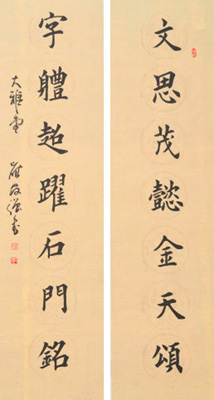 文思茂懿金天頌
字體超躍石門銘
大雅堂